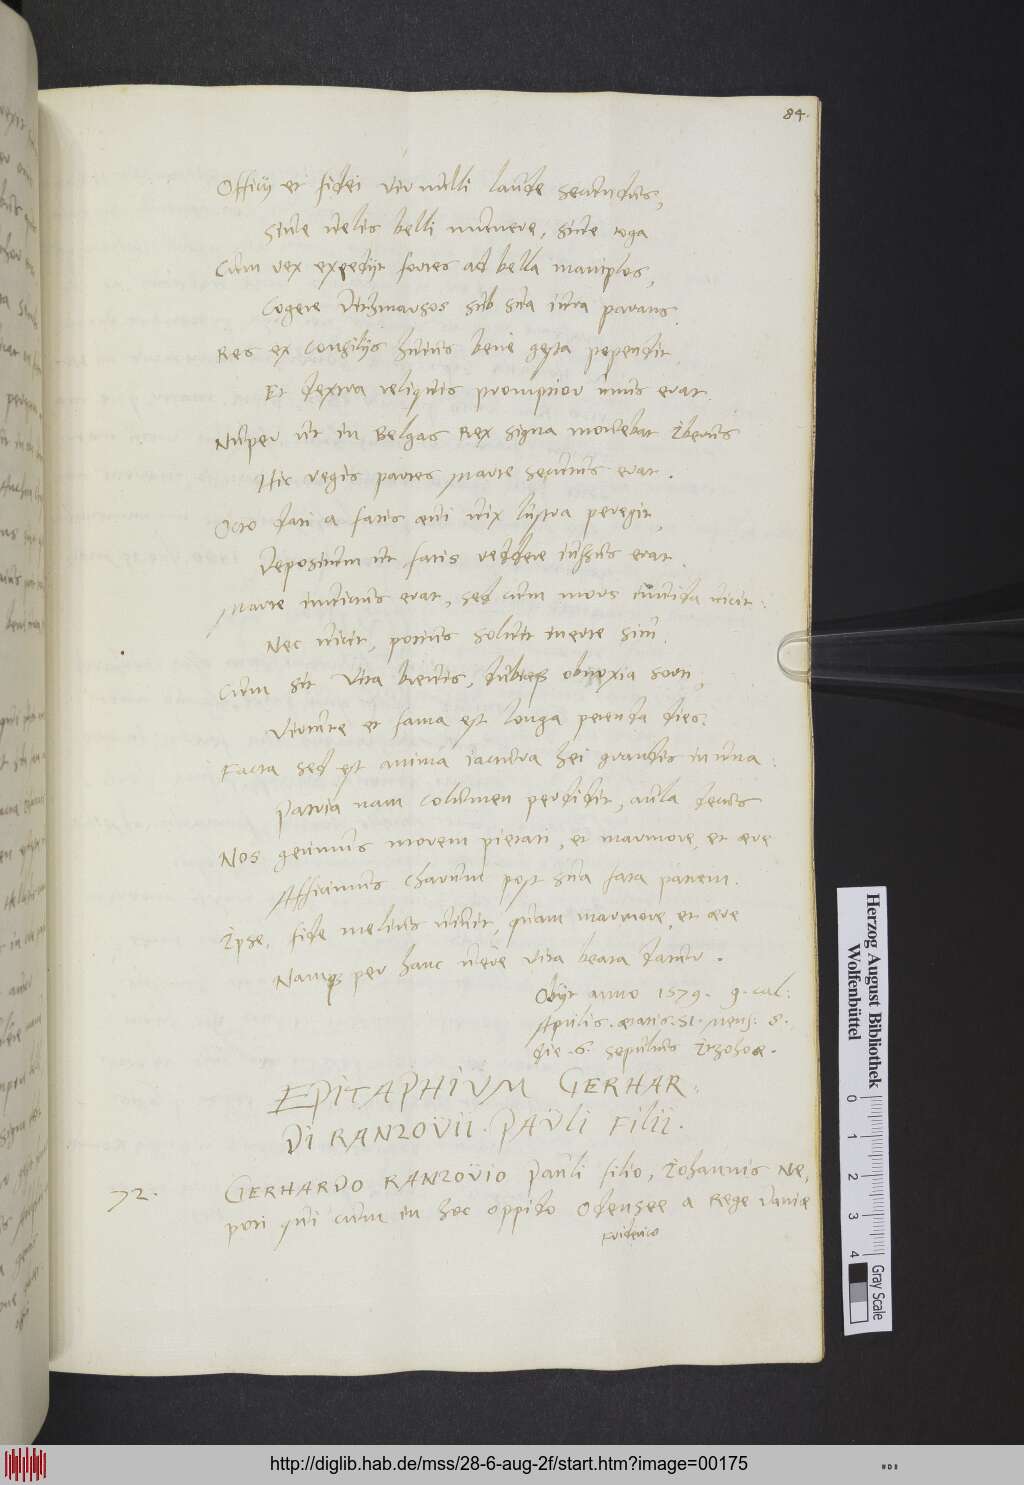 84.
Officij et fidei vir nulli laude secundus,
Siue uelis belli munere, siue toga
Cum rex expedijt fortes ad bella maniplos,
Cogere Dithmarsos sub sua iura parans.
Res ex consilijs huius bene gesta pependit
Et dextra reliquis promptior unus erat.
Nuper ut in Belgas Rex signa mouebat Iberus
Hic regis partes Marte secutus erat.
Octo dati a fatis aeui uix lustra peregit,
Depositum ut fatis reddere iussus erat.
Marte inuictus erat, sed cum mors inuida uicit:
Nec uicit, potius soluit inerte situ.
Cum sit vita breuis, dubiaeq obnoxia sorti,
Virtute et fama est longa petenda dies.
Facta sed est anima iactura hei grandis in una:
Patria nam columen perdidit, aula decus
Nos gerimus morem pietati, et marmore, et aere
Afficimus charum post sua fata patrem.
Ipse, fide melius uiuit, quam marmore, et aere
Namq per hanc uere vita beata datur.
Obijt anno 1579. 9. cal:
Aprilis. aetatis. 51. mens. 8.
die. 6. sepultus Itzohoae.
EPITAPHIVM GERHAR:
DI RANZOVII. PAVLI FILII.
72.
GERHARDO RANZOVIO Pauli filio, Iohannis Ne,
poti qui cum in hoc oppido Odensee a Rege Daniae
Friderico
Herzog August Bibliothek
Wolfenbüttel
0 1 2 3 4
Gray Scale
http://diglib.hab.de/mss/28-6-aug-2f/start.htm?image=00175